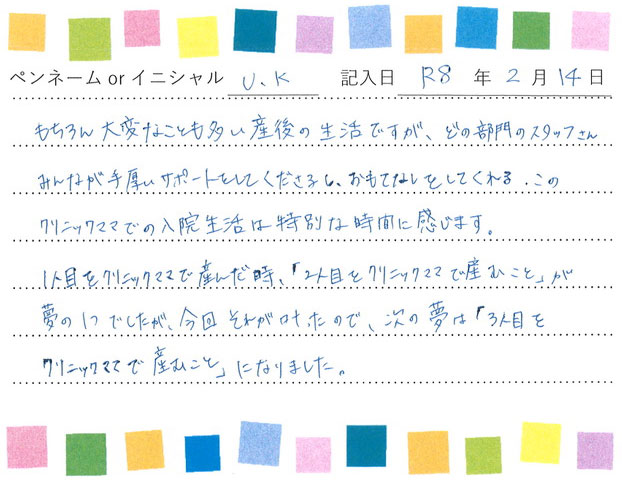 ペンネーム or イニシャル U.K 記入日 R8 年 2 月 14 日
もちろん大変なことも多い産後の生活ですが、どの部門のスタッフさん
みんなが手厚いサポートをしてくださるし、おもてなしをしてくれる、この
クリニックママでの入院生活は特別な時間に感じます。
1人目をクリニックママで産んだ時、「2人目をクリニックママで産むこと」が
夢の1つでしたが、今回それが叶ったので、次の夢は「3人目を
クリニックママで産むこと」になりました。